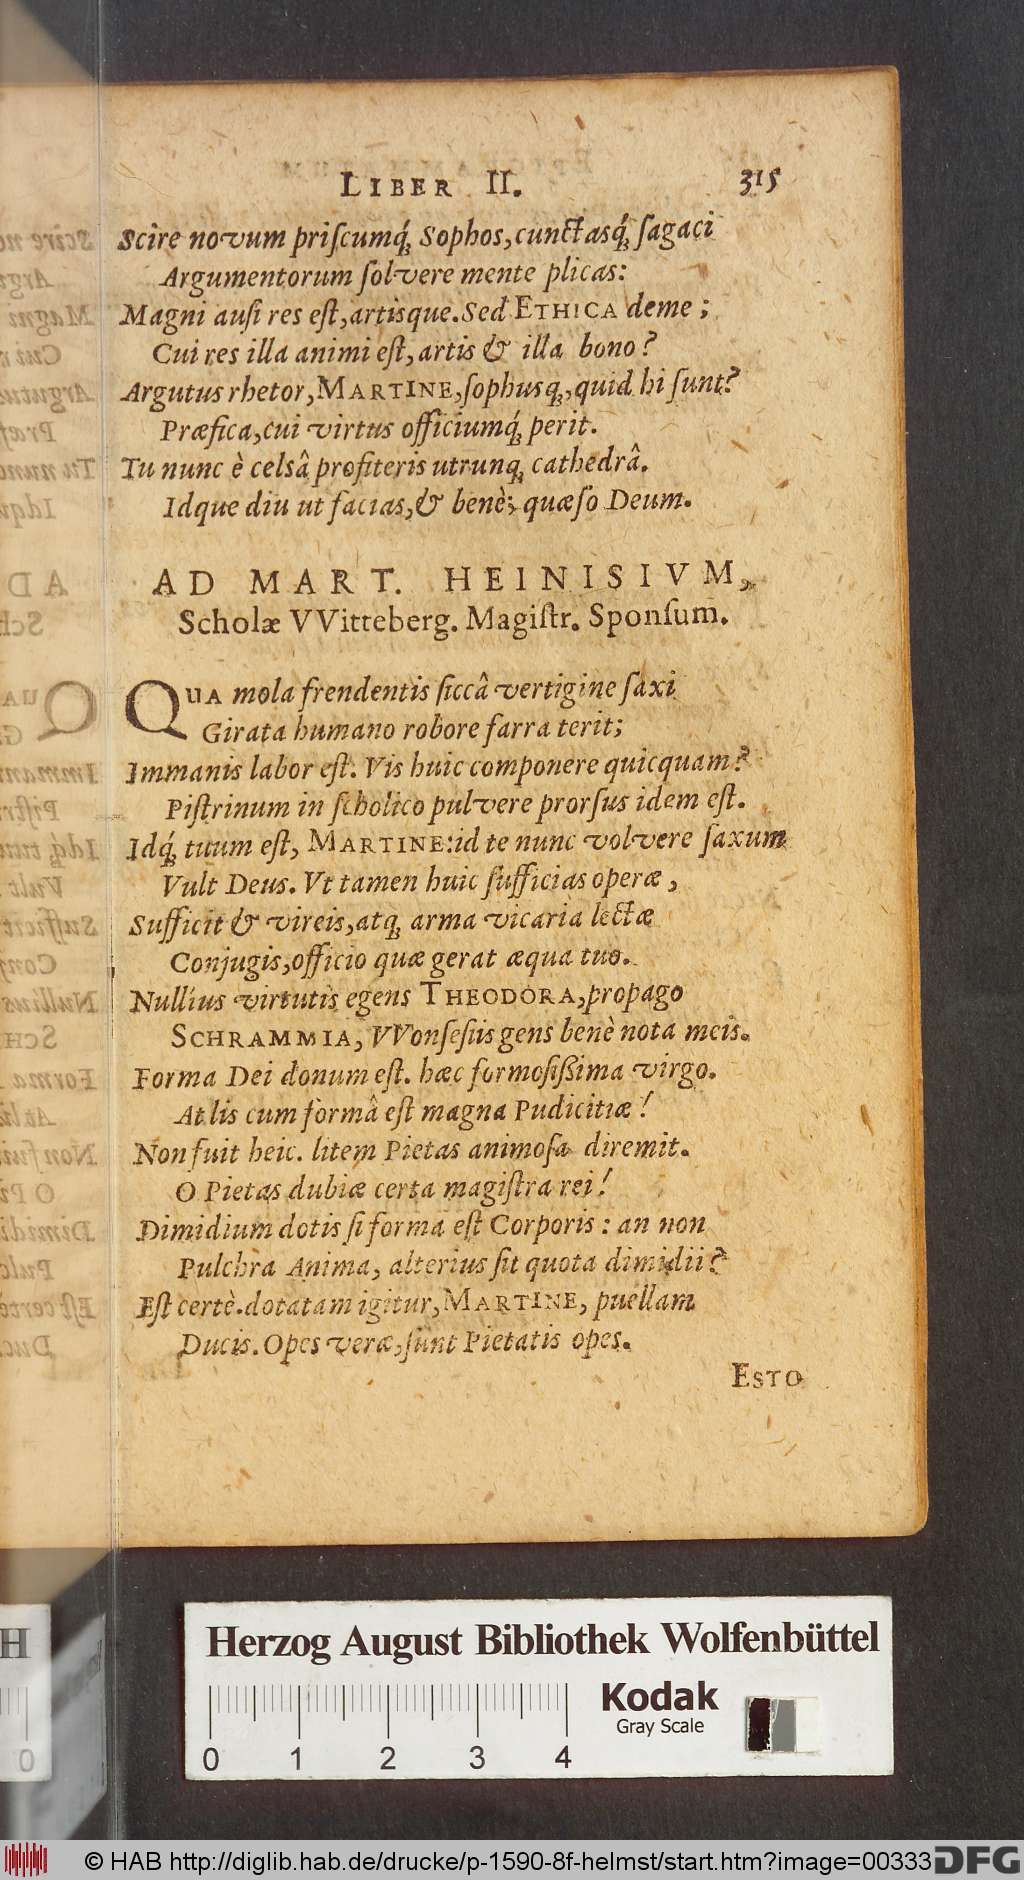 LIBER II. 315
Scire novum priſcumq́; Sophos, cunctasq́; ſagaci
Argumentorum ſolvere mente plicas:
Magni auſi res eſt, artisque. Sed ETHICA deme;
Cui res illa animi eſt, artis & illa bono?
Argutus rhetor, MARTINE, ſophusq;, quid hi ſunt?
Præfica, cui virtus officiumq́; perit.
Tu nunc è celsâ profiteris utrunq; cathedrâ.
Idque diu ut facias, & benè; quæſo Deum.
AD MART. HEINISIVM,
Scholæ VVitteberg. Magiſtr. Sponſum.
QUA mola frendentis ſiccâ vertigine ſaxi
Girata humano robore farra terit;
Immanis labor eſt. Vis huic componere quicquam?
Piſtrinum in ſcholico pulvere prorſus idem eſt.
Idq́; tuum eſt, MARTINE: id te nunc volvere ſaxum
Vult Deus. Vt tamen huic ſufficias operæ,
Sufficit & vireis, atq; arma vicaria lectæ
Conjugis, officio quæ gerat æqua tuo.
Nullius virtutis egens THEODORA, propago
SCHRAMMIA, VVonſeſiis gens benè nota meis.
Forma Dei donum eſt. hæc formoſiſſima virgo.
At lis cum formâ eſt magna Pudicitiæ!
Non fuit heic. litem Pietas animoſa diremit.
O Pietas dubiæ certa magiſtra rei!
Dimidium dotis ſi forma eſt Corporis: an non
Pulchra Anima, alterius ſit quota dimidii?
Eſt certè. dotatam igitur, MARTINE, puellam
Ducis. Opes veræ, ſunt Pietatis opes.
ESTO
Herzog August Bibliothek Wolfenbüttel
Kodak
Gray Scale
0 1 2 3 4
© HAB http://diglib.hab.de/drucke/p-1590-8f-helmst/start.htm?image=00333
DFG